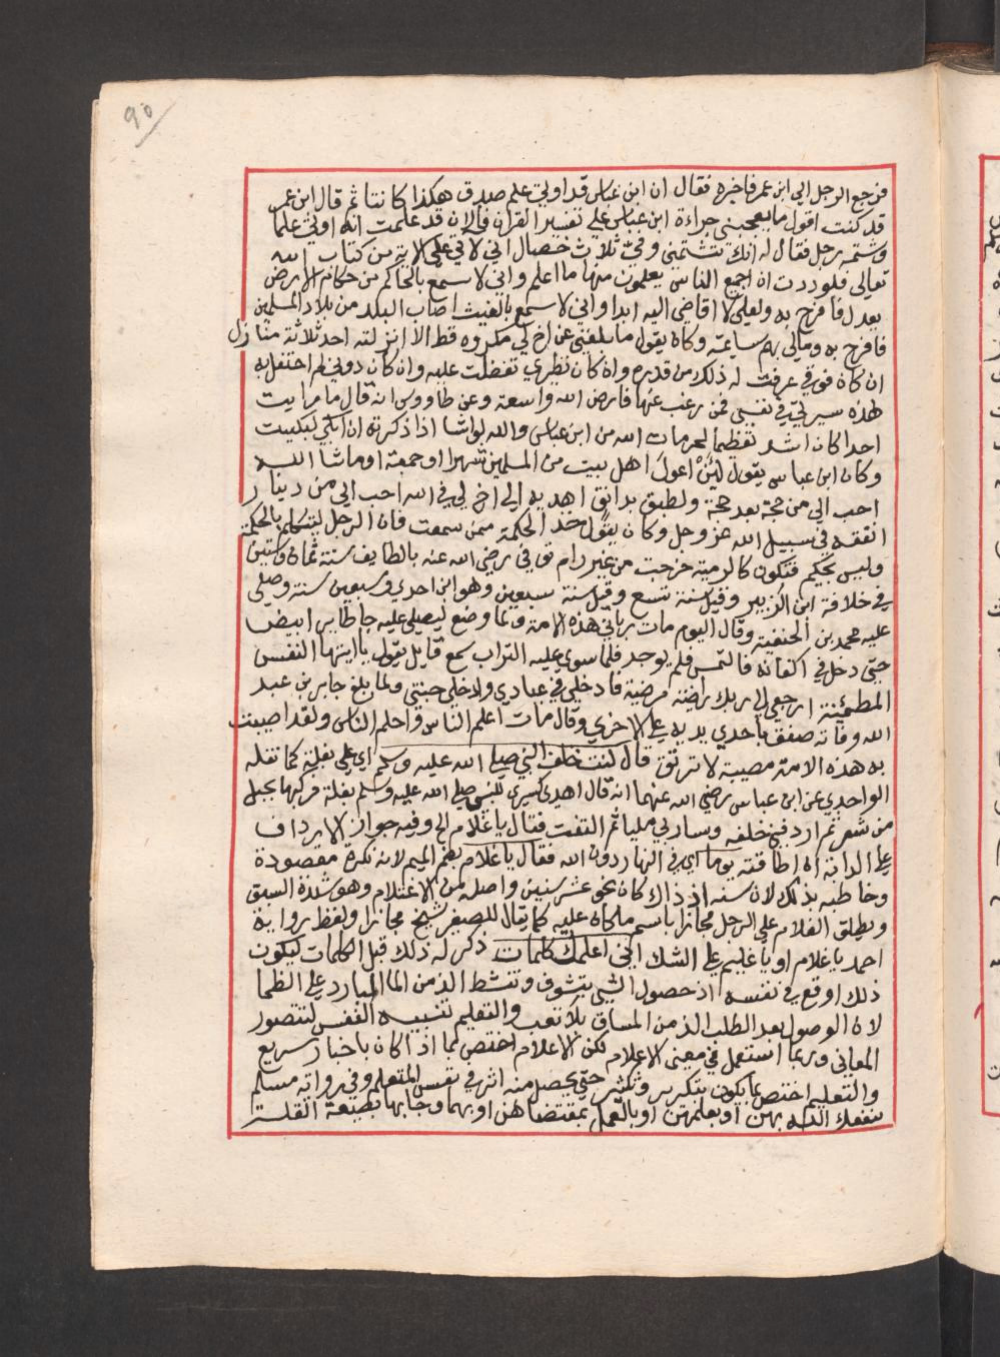 ٩٥
فرجع الرجل الي ابن عمر فاخبره فقال ان ابن عباس قد اوتي علم صدق هكذا كانتا ثم قال ابن عمر
قد كنت اقول ما يعجبني جراءة ابن عباس علي تفسير القران فالان قد علمت انه اوتي علما
وشتمه رجل فقال له انك تشتمني وفي ثلاث خصال اني لاتي علي الاية من كتاب الله
تعالي فلوددت ان اجمع الناس يعلمون منها ما اعلم واني لاسمع بالحاكم من حكام الارض
يعدل فافرح به ولعلي لا اقاضي اليه ابدا واني لاسمع بالغيث اصاب البلد من بلاد المسلمين
فافرح به ومالي بهم سايمة وكان يقول ما بلغني عن اخ لي مكروه قط الا انزلته احد ثلاثة منازل
ان كان فوقي عرفت له ذلك من قدره وان كان نظيري تفضلت عليه وان كان دوني لم احتفل به
هذه سيرتي في نفسي فمن رغب عنها فارض الله واسعة وعن طاووس انه قال ما رايت
احدا كان اشد تعظيما لحرمات الله من ابن عباس والله لو اشا اذا ذكرته ان ابكي لبكيت
وكان ابن عباس يقول لئن اعول اهل بيت من المسلمين شهرا او جمعة او ما شا الله
احب الي من حجة بعد حجة ولطبق بدانق اهديه الي اخ لي في الله احب الي من دينار
انفقه في سبيل الله عز وجل وكان يقول خذ الحكمة ممن سمعت فان الرجل ليتكلم بالحكمة
وليس بحكيم فتكون كالرمية خرجت من غير رام توفي رضي الله عنه بالطايف سنة ثمان وستين
في خلافة ابن الزبير وقيل سنة تسع وقيل سنة سبعين وهو ابن احدي وسبعين سنة وصلي
عليه محمد بن الحنفية وقال اليوم مات رباني هذه الامة ولما وضع ليصلي عليه جا طاير ابيض
حتي دخل في اكفانه فالتمس فلم يوجد فلما سوي عليه التراب سمع قايل يقول يا ايتها النفس
المطمئنة ارجعي الي ربك راضية مرضية فادخلي في عبادي وادخلي جنتي ولما بلغ جابر بن عبد
الله وفاته صفق باحدي يديه علي الاخري وقال مات اعلم الناس واحلم الناس ولقد اصيبت
به هذه الامة مصيبة لا ترتق قال كنت خلف النبي صلي الله عليه وسلم اي علي بغلة كما نقله
الواحدي عن ابن عباس رضي الله عنهما انه قال اهدي كسري للنبي صلي الله عليه وسلم بغلة فركبها بحبل
من شعر ثم اردفني خلفه وسار بي مليا ثم التفت فقال يا غلام الخ وفيه جواز الارداف
علي الدابة ان اطاقته يوما اي في النهار دون الله فقال يا غلام بضم الميم لانه نكرة مقصودة
وخاطبه بذلك لان سنه اذ ذاك كان نحو عشر سنين واصله من الاغتلام وهو شدة السبق
ويطلق الغلام علي الرجل مجازا باسم ما كان عليه كما يقال للصغير شيخ مجازا ولفظ رواية
احمد يا غلام او يا غليم علي الشك اني اعلمك كلمات ذكر له ذلك قبل الكلمات ليكون
ذلك اوقع في نفسه اذ حصول الشي بتشوف وتنشط الذ من الما البارد علي الظما
لان الوصول بعد الطلب الذ من المساق بلا تعب والتعليم تنبيه النفس لتتصور
المعاني وربما استعمل في معني الاعلام لكن الاعلام اختص بما اذا كان باخبار سريع
والتعليم اختص بما يكون بتكرير وتكثير حتي يحصل منه اثر في نفس المتعلم وفي رواية مسلم
ينفعك الله بهن او بعلمهن او بالعمل بمقتضاهن او بهما وجا بها بصيغة القلة